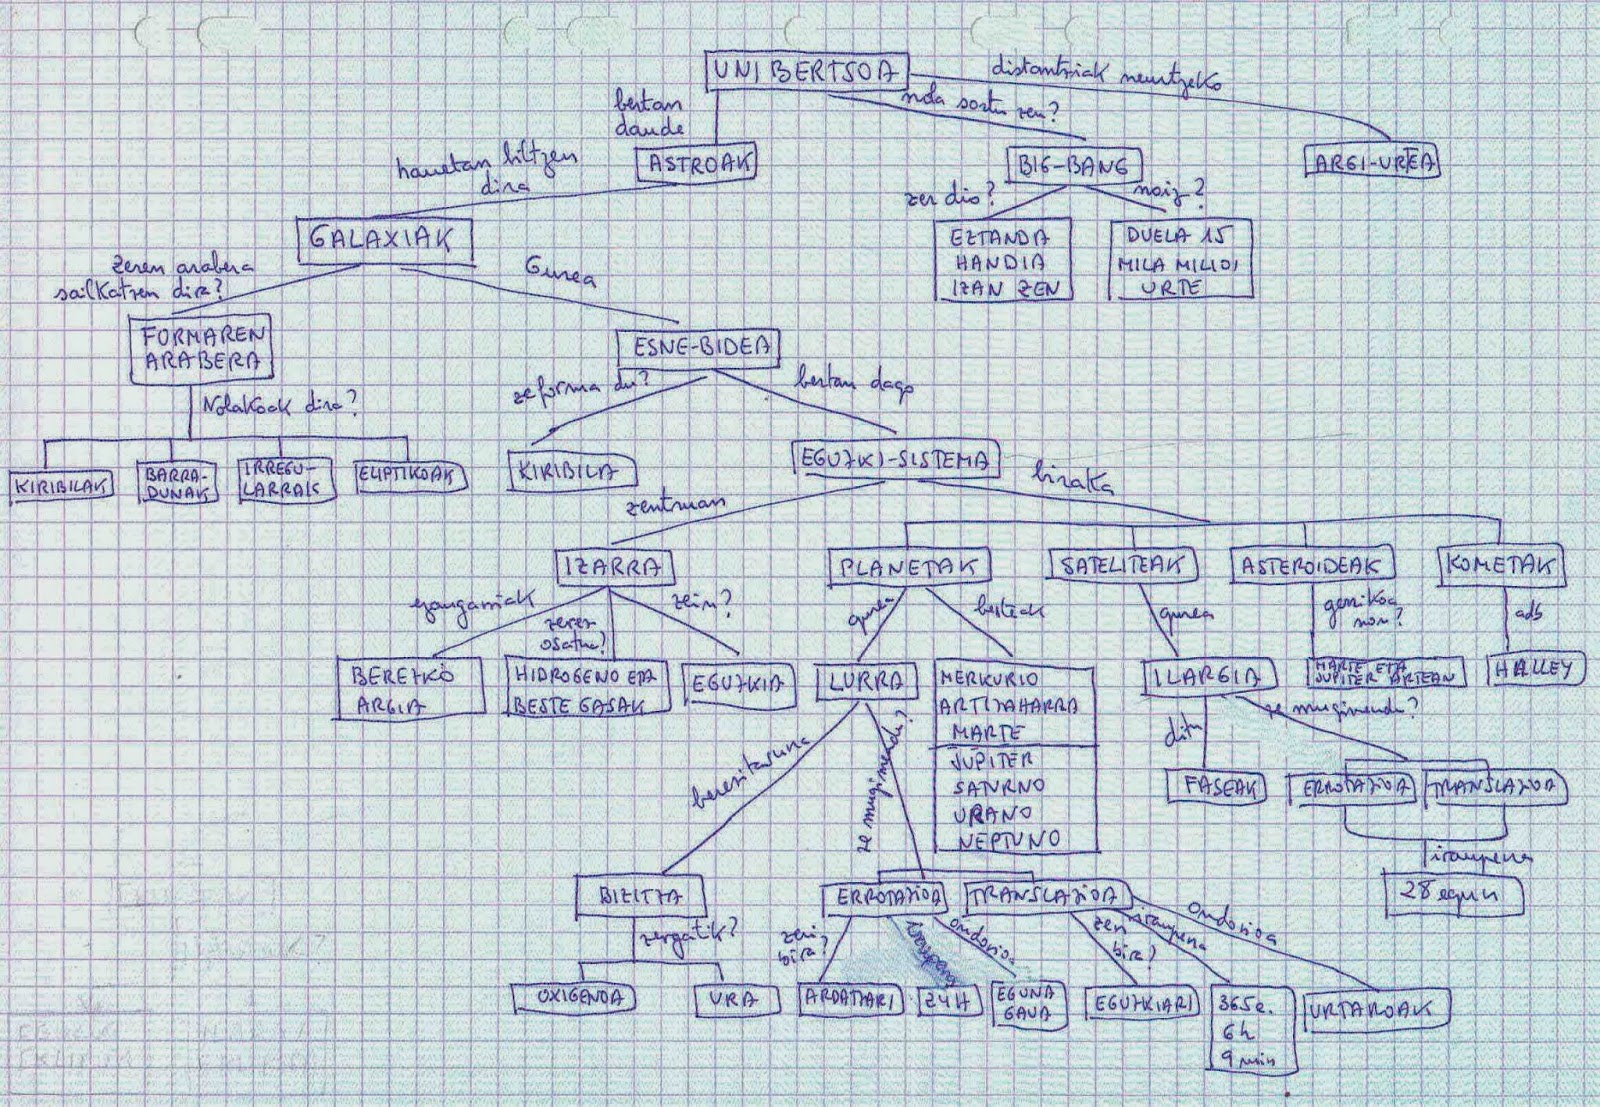 UNIBERTSOA
distantziak neurtzeko
bertan
daude
nola sortu zen?
ASTROAK
BIG-BANG
ARGI-URTEA
hauetan biltzen
dira
zer dio?
noiz?
GALAXIAK
EZTANDA
HANDIA
IZAN ZEN
DUELA 15
MILA MILIOI
URTE
zeren arabera
sailkatzen dira?
Gurea
FORMAREN
ARABERA
ESNE-BIDEA
Nolakoak dira?
ze forma du?
bertan dago
KIRIBILAK
BARRA-
DUNAK
IRREGU-
LARRAK
ELIPTIKOAK
KIRIBILA
EGUZKI-SISTEMA
zentruan
biraka
IZARRA
PLANETAK
SATELITEAK
ASTEROIDEAK
KOMETAK
ezaugarriak
zerez
osatua?
zein?
gurea
besteak
gurea
gerrikoa
non?
adb
BEREZKO
ARGIA
HIDROGENO ETA
BESTE GASAK
EGUZKIA
LURRA
MERKURIO
ARTIZAHARRA
MARTE
JUPITER
SATURNO
URANO
NEPTUNO
ILARGIA
MARTE ETA
JUPITER ARTEAN
HALLEY
berezitasuna
ze mugimendu?
ditu
ze mugimendu?
FASEAK
ERROTAZIOA
TRANSLAZIOA
iraupena
28 egun
BIZITZA
ERROTAZIOA
TRANSLAZIOA
zergatik?
zeri
bira?
iraupena
ondorioa
zeri
bira?
iraupena
ondorioa
OXIGENOA
URA
ARDATZARI
24H
EGUNA
GAUA
EGUZKIARI
365e.
6h
9min
URTAROAK